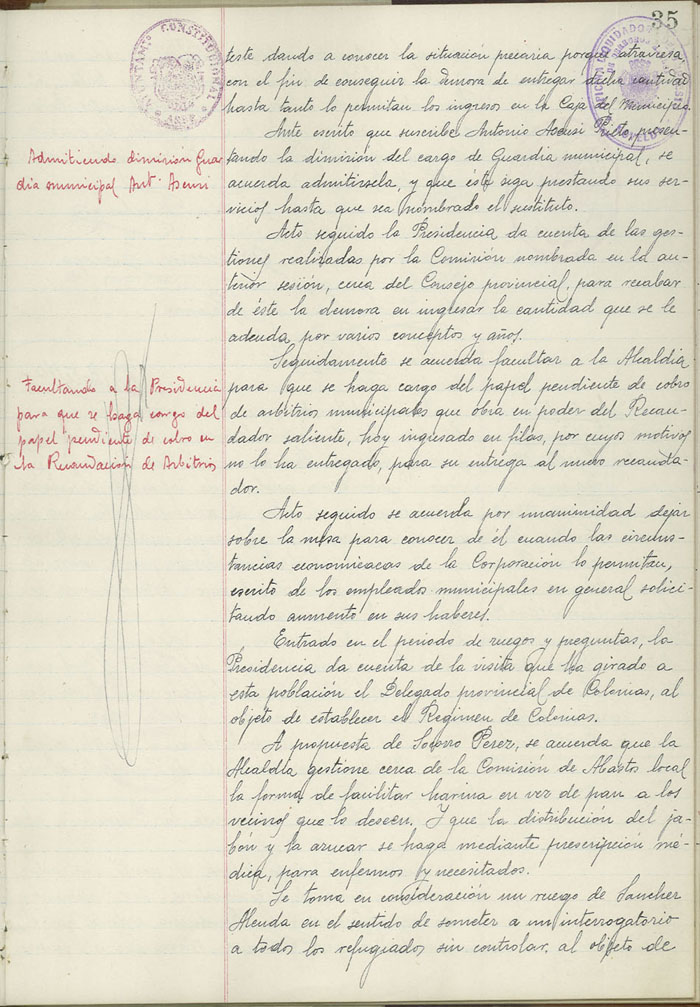 35
AYUNTAM.º CONSTITUCIONAL
ASPE
teste dando a conocer la situación precaria porque atraviesa,
con el fin de conseguir la demora de entregar dicha cantidad
hasta tanto lo permitan los ingresos en la Caja del Municipio.
Ante escrito que suscribe Antonio Asensi Prieto, presen-
tando la dimisión del cargo de Guardia municipal, se
acuerda admitirsela, y que éste siga prestando sus ser-
vicios hasta que sea nombrado el sustituto.
Admitiendo dimisión Guar
dia municipal Ant.º Asensi
Acto seguido la Presidencia da cuenta de las ges-
tiones realizadas por la Comisión nombrada en la an-
terior sesión, cerca del Consejo provincial, para recabar
de éste la demora en ingresar la cantidad que se le
adeuda por varios conceptos y años.
Seguidamente se acuerda facultar a la Alcaldía
para que se haga cargo del papel pendiente de cobro
de arbitrios municipales que obra en poder del Recau-
dador saliente, hoy ingresado en filas, por cuyos motivos
no lo ha entregado, para su entrega al nuevo recauda-
dor.
Facultando a la Presidencia
para que se haga cargo del
papel pendiente de cobro en
la Recaudación de Arbitrios
Acto seguido se acuerda por unanimidad dejar
sobre la mesa para conocer de él cuando las circuns-
tancias economicas de la Corporación lo permitan,
escrito de los empleados municipales en general solici-
tando aumento en sus haberes.
Entrado en el periodo de ruegos y preguntas, la
Presidencia da cuenta de la visita que ha girado a
esta población el Delegado provincial de Colonias, al
objeto de establecer el Regimen de Colonias.
A propuesta de Socorro Perez, se acuerda que la
Alcaldía gestione cerca de la Comisión de Abastos local
la forma de facilitar harina en vez de pan a los
vecinos que lo deseen. Y que la distribución del ja-
bón y la azucar se haga mediante prescripción mé-
dica, para enfermos y necesitados.
Se toma en consideración un ruego de Sanchez
Alenda en el sentido de someter a un interrogatorio
a todos los refugiados sin controlar, al objeto de